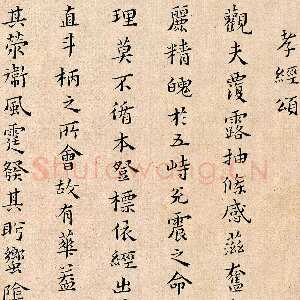 孝經頌
觀夫覆露抽條感蕊奮
麗精魄於五峙兌震之命
理莫不循本登標依經出
直斗柄之所會故有華益
其榮衛風霆發其盻蠁陰